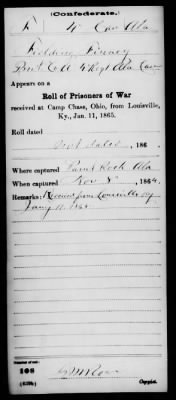 (Confederate.)
F 4 Cav Ala
Fielding Finney
Pvt Co A 4 Regt Ala Cav
Appears on a
Roll of Prisoners of War
received at Camp Chase, Ohio, from Louisville,
Ky., Jan. 11, 1865.
Roll dated
Not dated, 186 .
Where captured Paint Rock Ala
When captured Nov 8, 1864.
Remarks: Received from Louisville Ky
Jany 11 1865
Number of roll:
108
(639b) Copyist.